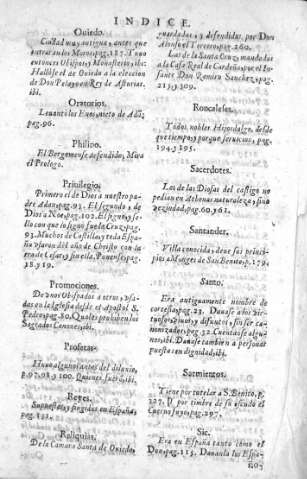 INDICE.
Oviedo.
Ciudad muy antigua, antes que
entrara los Moros, pag.117. Tuuo
entonces Obispos, y Monasterio, ibi.
Hallòse el de Ouiedo a la eleccion
de Don Pelayo en Rey de Asturias.
ibi.
Oratorios.
Leuantolos Enos, nieto de Adã;
pag.96.
Philipo.
El Bergomense defendido, Mira
el Prologo.
Priuilegio.
Primero el de Dios a nuestro pa-
dre Adan, pag.93. El segundo, de
Dios a Noe, pag.102. El
llo con que lo signò fue la Cruz, pag.
93. Muchos de Castilla, y toda Espa-
ña
ra de Cesar, y sin ella, Ponense, pag.
18.y 19.
Promociones.
De vnos Obispados a otros, vsa-
das en la Iglesia desde el Apostol S.
Pedro, pag.80. Quales prohiben los
Sagrados Canones, ibi.
Profetas.
Huuo algunos antes del diluuio,
p.97.98. y 100. Quienes fuessè, ibi.
Reyes.
Supuestos, y fingidos en España,
pag.
Reliquias.
De la Camara Santa de Ouiedo
guardadas, y defendidas por Don
Alonso el Tercero, pag.260.
Las de la Santa Cruz, mandadas
a la Casa Real de Cardeña, por el In-
fante Don Ramiro Sanchez, pag.
213. y 309.
Roncaleses.
Todos nobles Hijosdalgo, desde
que tiempo, y porque seruicios, pag.
194. y 195.
Sacerdotes.
Los de las Diosas del castigo no
pedian en Athenas naturaleza, sino
vezindad, pag.60. y 61.
Santander.
Villa conocida, deue sus princi-
pios a Monges de San Benito, p.179.
Santo.
Era antiguamente nombre de
cortesia, pag.23. Dauase a los Bie-
nos, viuos, y difuntos, sin ser ca-
nonizados, pag.32. Cuentase algu-
nos, ibi. Dauase tambien a personas
puestas en dignidad, ibi.
Sarmientos.
Tiene por tutelar a S. Benito, p.
227. Y por timbre de su escudo el
Cueruo suyo, pag.297.
Sic.
Era en España tanto como el
Don, pag.115. Dauanla los Espa-